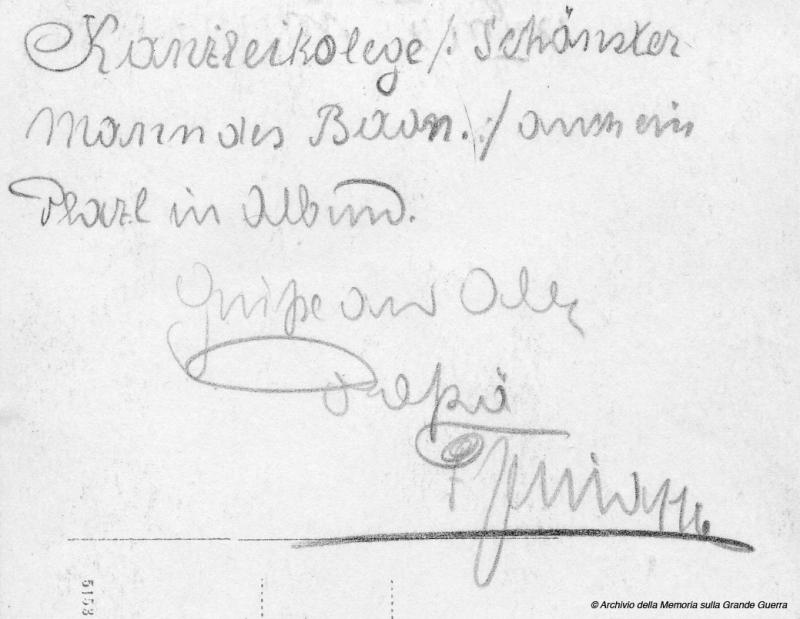 Kanzleikolege /: Schönster
Mann des Baon. :/ auch ein
Platzl in Album.
Grüße an Alle
5153
© Archivio della Memoria sulla Grande Guerra